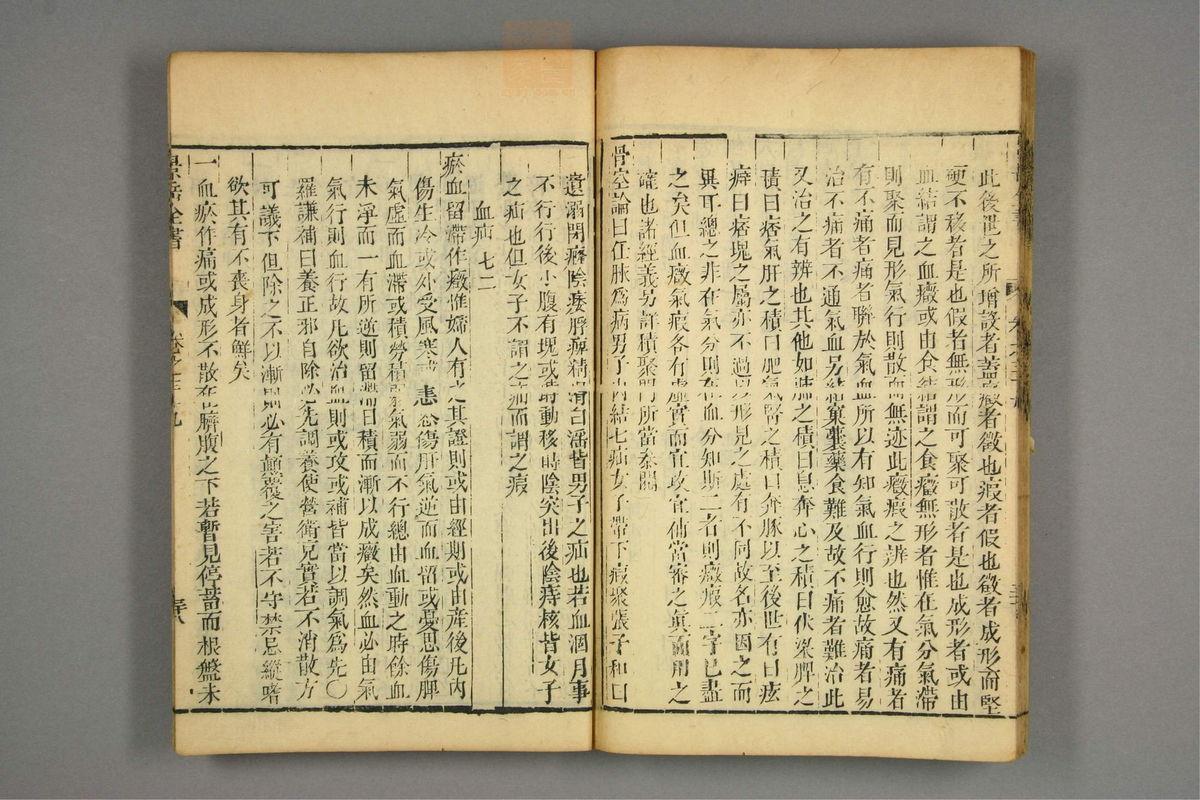 此後世之所增設者蓋癥者徵也瘕者假也徵者成形而堅
硬不移者是也假者無形而可聚可散者是也成形者或由
血結謂之血癥或由食結謂之食癥無形者惟在氣分氣滯
則聚而見形氣行則散而無迹此癥瘕之辨也然又有痛者
有不痛者痛者聯於氣血所以有知氣血行則愈故痛者易
治不痛者不通氣血另結窠囊藥食難及故不痛者難治此
又治之有辨也其他如肺之積曰息奔心之積曰伏梁脾之
積曰痞氣肝之積曰肥氣腎之積曰奔豚以至後世有曰痃
癖曰痞塊之屬亦不過以形見之處有不同故名亦因之而
異耳總之非在氣分則在血分知斯二者則癥瘕二字已盡
之矣但血癥氣瘕各有虛實而宜攻宜補當審之眞而用之
確也諸經義另詳積聚門所當參閱
骨空論曰任脉爲病男子內結七疝女子帶下瘕聚張子和曰
遺溺閉癃陰痿脬痺精滑白淫皆男子之疝也若血涸月事
不行行後小腹有塊或時動移時陰突出後陰痔核皆女子
之疝也但女子不謂之疝而謂之瘕
血癥 七二
瘀血留滯作癥惟婦人有之其證則或由經期或由產後凡內
傷生冷或外受風寒或恚怒傷肝氣逆而血留或憂思傷脾
氣虛而血滯或積勞積弱氣弱而不行總由血動之時餘血
未淨而一有所逆則留滯日積而漸以成癥矣然血必由氣
氣行則血行故凡欲治血則或攻或補皆當以調氣爲先〇
羅謙補曰養正邪自除必先調養使營衛充實若不消散方
可議下但除之不以漸則必有顛覆之害若不守禁忌縱嗜
欲其有不喪身者鮮矣
一血瘀作痛或成形不散在臍腹之下若暫見停蓄而根盤未
景岳全書 卷之三十九 三十八